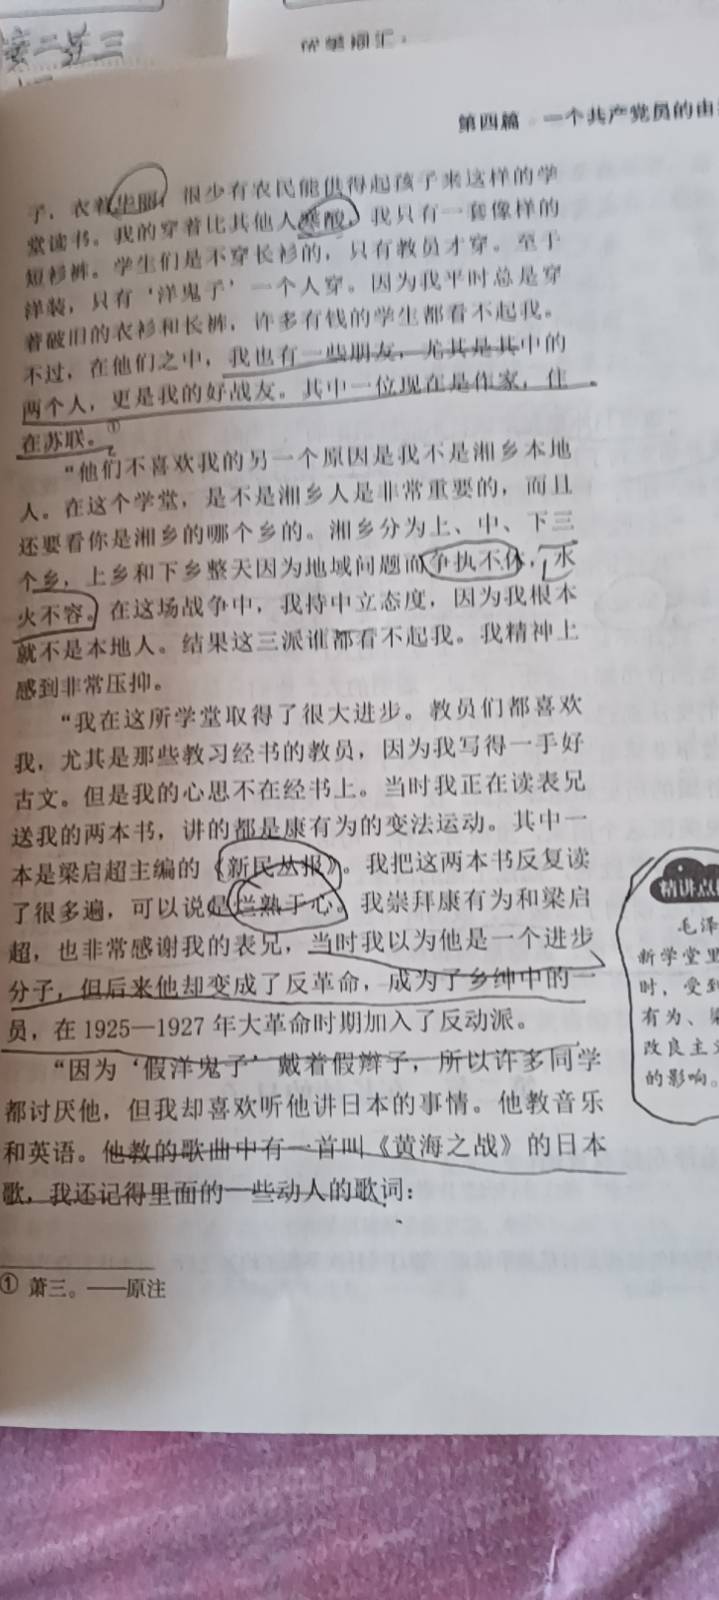 接二连三
优美词汇：
第四篇 一个共产党员的由
子，衣着华丽，很少有农民能供得起孩子来这样的学
堂读书。我的穿着比其他人寒酸，我只有一套像样的
短衫裤。学生们是不穿长衫的，只有教员才穿。至于
洋装，只有‘洋鬼子’一个人穿。因为我平时总是穿
着破旧的衣衫和长裤，许多有钱的学生都看不起我。
不过，在他们之中，我也有一些朋友，尤其是其中的
两个人，更是我的好战友。其中一位现在是作家，住
在苏联。①
“他们不喜欢我的另一个原因是我不是湘乡本地
人。在这个学堂，是不是湘乡人是非常重要的，而且
还要看你是湘乡的哪个乡的。湘乡分为上、中、下三
个乡，上乡和下乡整天因为地域问题而争执不休，水
火不容。在这场战争中，我持中立态度，因为我根本
就不是本地人。结果这三派谁都看不起我。我精神上
感到非常压抑。
“我在这所学堂取得了很大进步。教员们都喜欢
我，尤其是那些教习经书的教员，因为我写得一手好
古文。但是我的心思不在经书上。当时我正在读表兄
送我的两本书，讲的都是康有为的变法运动。其中一
本是梁启超主编的《新民丛报》。我把这两本书反复读
了很多遍，可以说是烂熟于心。我崇拜康有为和梁启
超，也非常感谢我的表兄，当时我以为他是一个进步
分子，但后来他却变成了反革命，成为了乡绅中的一
员，在1925—1927年大革命时期加入了反动派。
“因为‘假洋鬼子’戴着假辫子，所以许多同学
都讨厌他，但我却喜欢听他讲日本的事情。他教音乐
和英语。他教的歌曲中有一首叫《黄海之战》的日本
歌，我还记得里面的一些动人的歌词：
① 萧三。——原注
精讲点
毛泽
新学堂里
时，受到
有为、梁
改良主义
的影响。